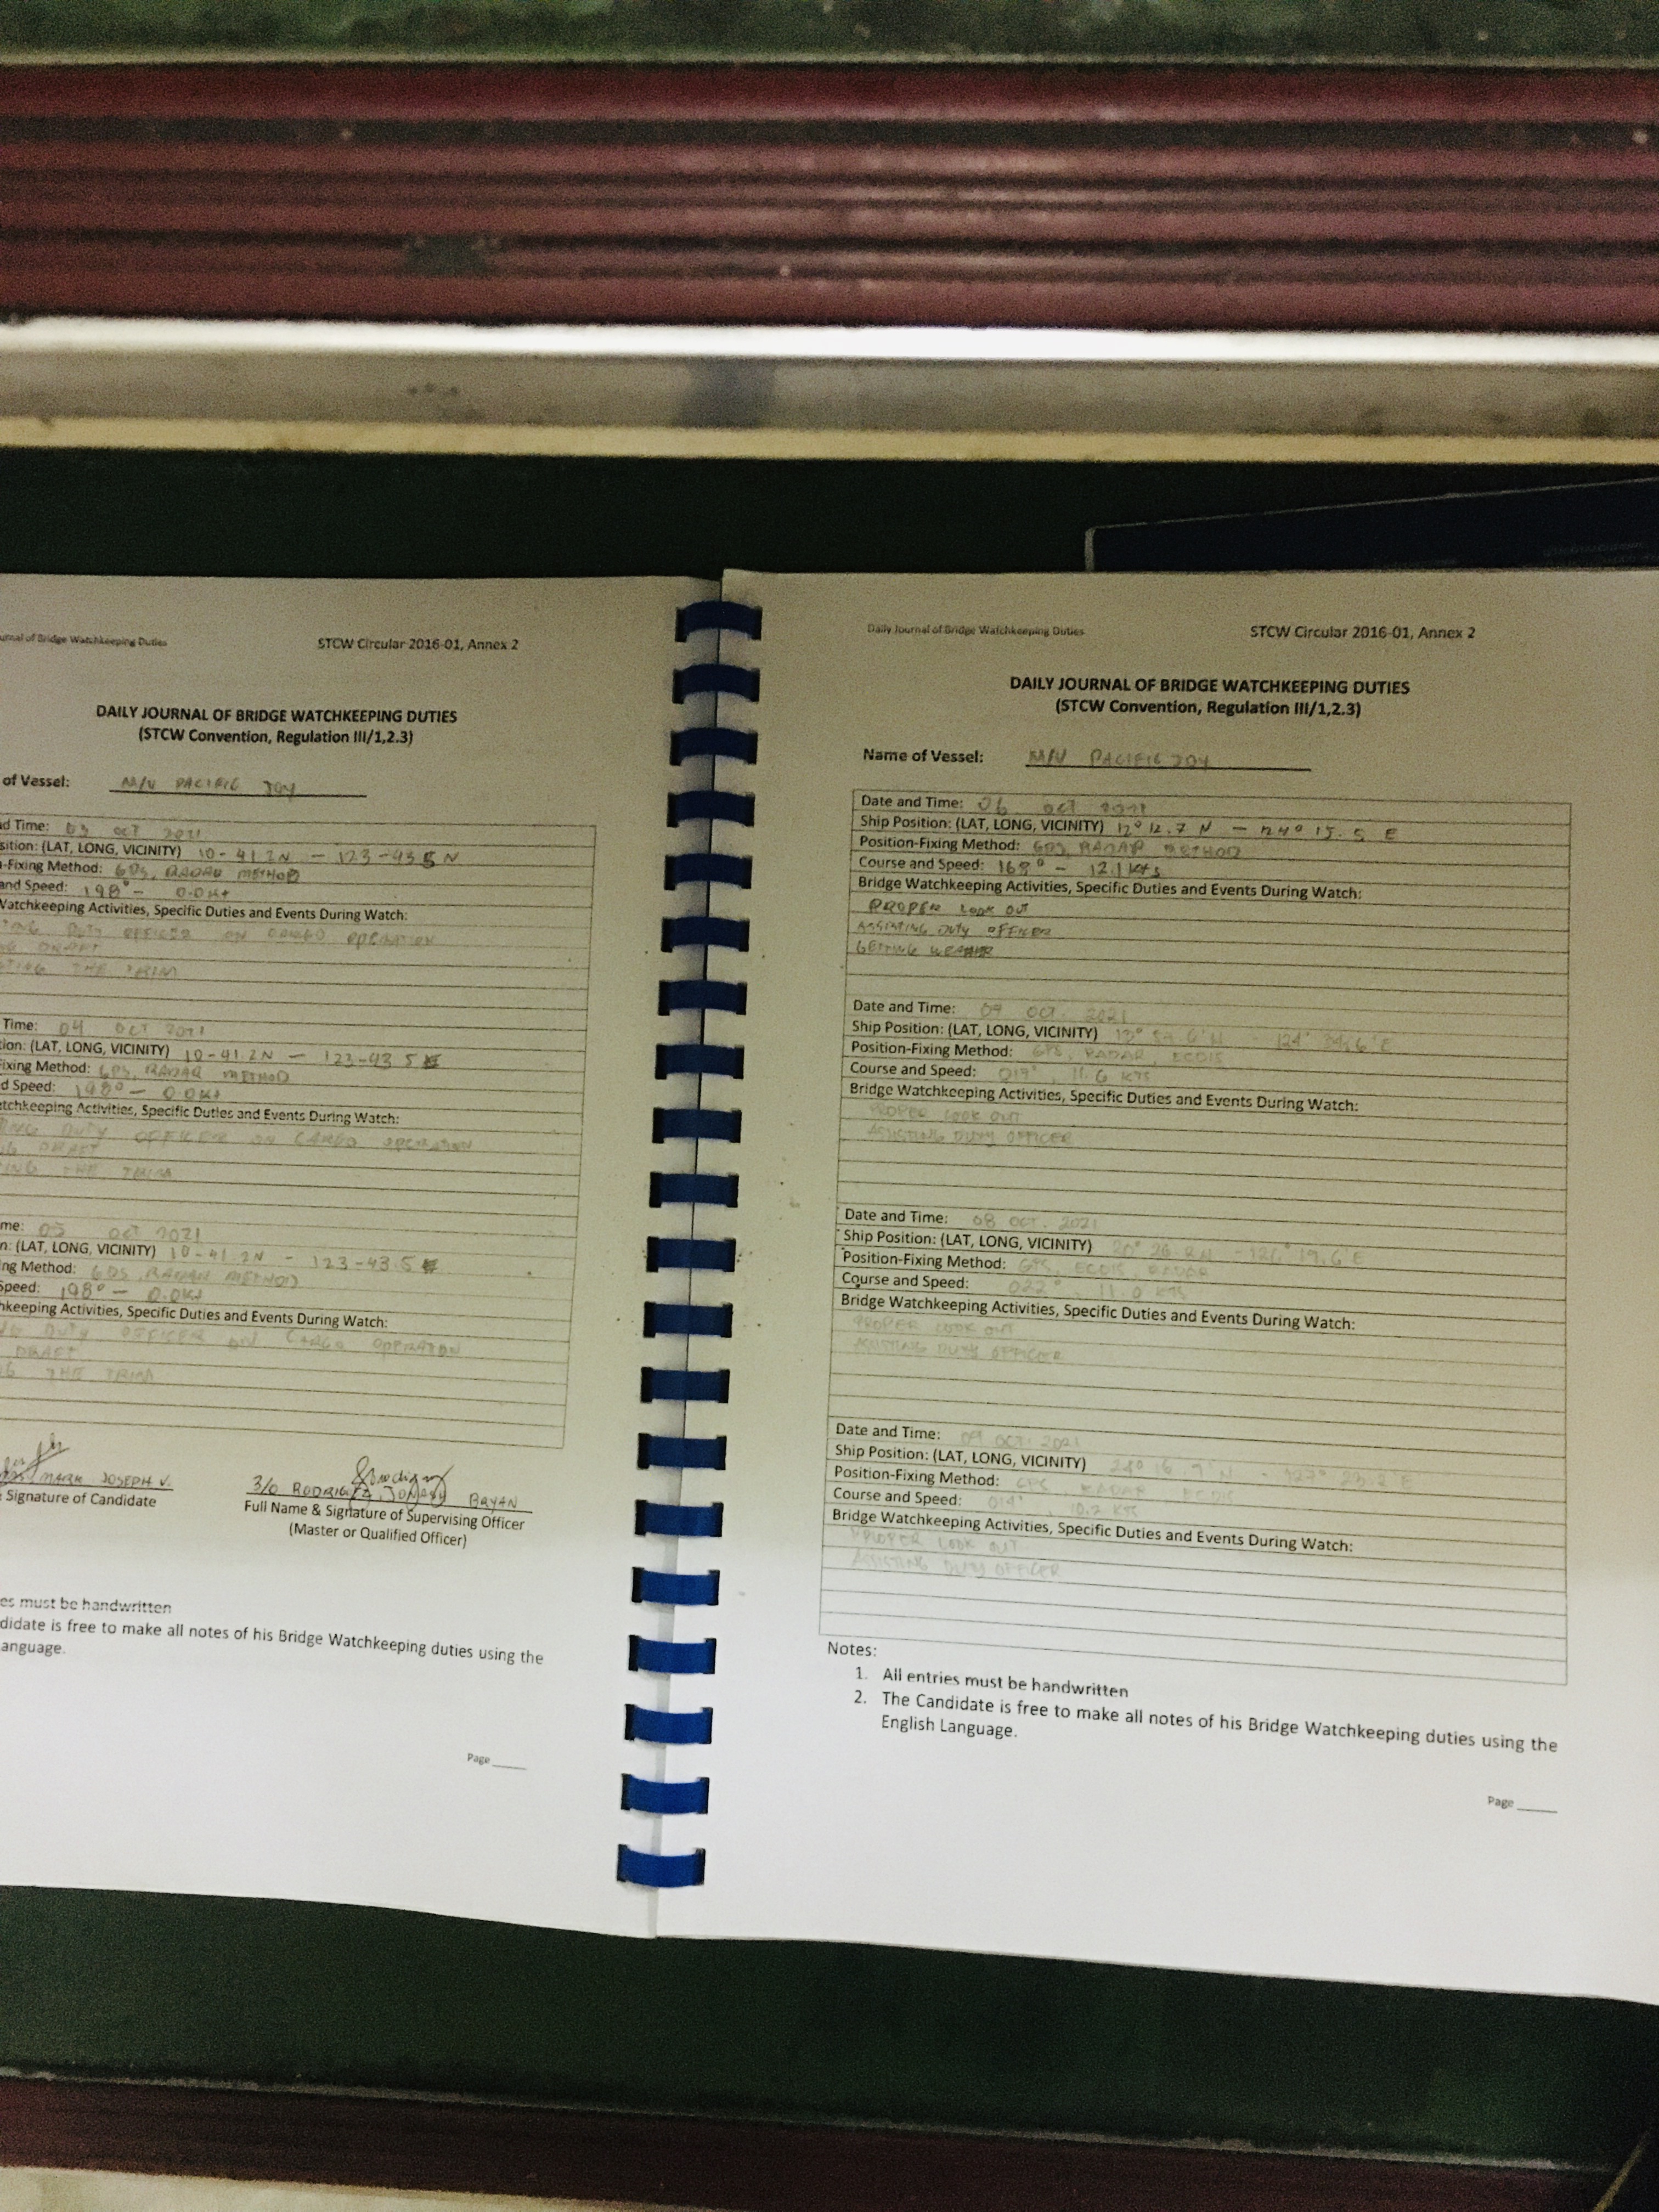 urnal of Bridge Watchkeeping Duties STCW Circular 2016-01, Annex 2
DAILY JOURNAL OF BRIDGE WATCHKEEPING DUTIES
(STCW Convention, Regulation III/1,2.3)
of Vessel: M/V PACIFIC JOY
d Time: 03 OCT 2021
sition: (LAT, LONG, VICINITY) 10-41.2N - 123-43.5 N
-Fixing Method: GPS, RADAR METHOD
and Speed: 198° - 0.0kt
Watchkeeping Activities, Specific Duties and Events During Watch:
TING DUTY OFFICER ON CARGO OPERATION
NG DRAFT
TING THE TRIM
Time: 04 OCT 2021
tion: (LAT, LONG, VICINITY) 10-41.2N - 123-43.5 E
Fixing Method: GPS, RADAR METHOD
d Speed: 198° - 0.0kt
tchkeeping Activities, Specific Duties and Events During Watch:
TING DUTY OFFICER ON CARGO OPERATION
NG DRAFT
TING THE TRIM
me: 05 OCT 2021
n: (LAT, LONG, VICINITY) 10-41.2N - 123-43.5 E
ng Method: GPS, RADAR METHOD
Speed: 198° - 0.0kt
hkeeping Activities, Specific Duties and Events During Watch:
NG DUTY OFFICER ON CARGO OPERATION
DRAFT
NG THE TRIM
MARK JOSEPH V. 3/O RODRIGUEZ, BRYAN
Signature of Candidate Full Name & Signature of Supervising Officer
(Master or Qualified Officer)
es must be handwritten
didate is free to make all notes of his Bridge Watchkeeping duties using the
anguage.
Page
Daily Journal of Bridge Watchkeeping Duties STCW Circular 2016-01, Annex 2
DAILY JOURNAL OF BRIDGE WATCHKEEPING DUTIES
(STCW Convention, Regulation III/1,2.3)
Name of Vessel: M/V PACIFIC JOY
Date and Time: 06 OCT 2021
Ship Position: (LAT, LONG, VICINITY) 12° 12.7 N - 124° 15.5 E
Position-Fixing Method: GPS, RADAR METHOD
Course and Speed: 168° - 12.1 kts
Bridge Watchkeeping Activities, Specific Duties and Events During Watch:
PROPER LOOK OUT
ASSISTING DUTY OFFICER
GETTING WEATHER
Date and Time: 07 OCT. 2021
Ship Position: (LAT, LONG, VICINITY)
Position-Fixing Method: GPS, RADAR, ECDIS
Course and Speed: 017°, 11.6 KTS
Bridge Watchkeeping Activities, Specific Duties and Events During Watch:
PROPER LOOK OUT
ASSISTING DUTY OFFICER
Date and Time: 08 OCT. 2021
Ship Position: (LAT, LONG, VICINITY) 20° 26.8 N - 126° 19.6' E
Position-Fixing Method: GPS, ECDIS, RADAR
Course and Speed: 022°, 11.0 KTS
Bridge Watchkeeping Activities, Specific Duties and Events During Watch:
PROPER LOOK OUT
ASSISTING DUTY OFFICER
Date and Time: 09 OCT. 2021
Ship Position: (LAT, LONG, VICINITY)
Position-Fixing Method: GPS, RADAR, ECDIS
Course and Speed: 014° 10.7 KTS
Bridge Watchkeeping Activities, Specific Duties and Events During Watch:
PROPER LOOK OUT
ASSISTING DUTY OFFICER
Notes:
1. All entries must be handwritten
2. The Candidate is free to make all notes of his Bridge Watchkeeping duties using the
English Language.
Page